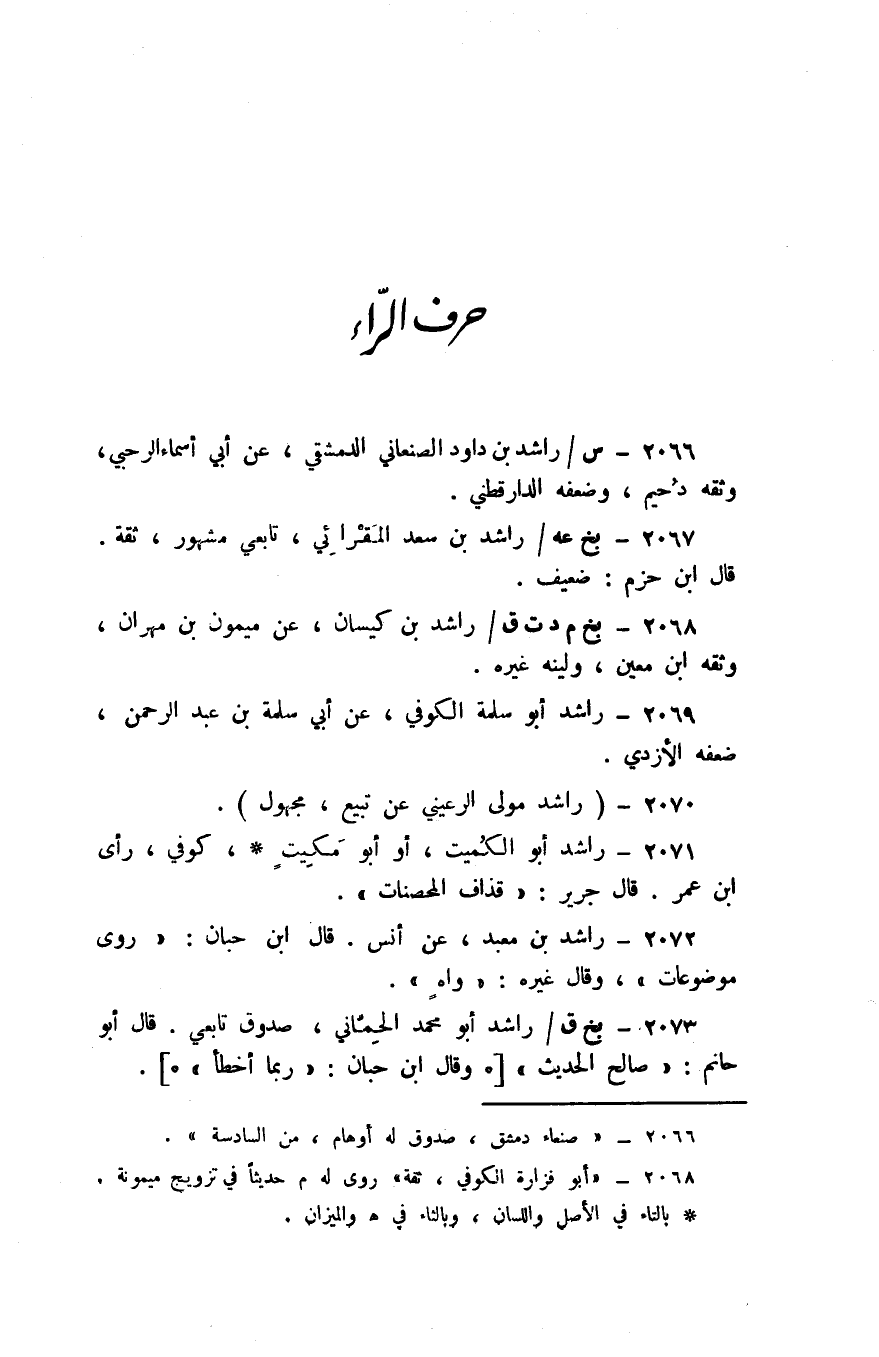 حرف الرّاء
٢٠٦٦ – س / راشد بن داود الصنعاني الدمشقي ، عن أبي أسماء الرحبي،
وثقه دُحيم ، وضعفه الدارقطني .
٢٠٦٧ – بخ عه / راشد بن سعد المَقْرائي ، تابعي مشهور ، ثقة .
قال ابن حزم : ضعيف .
٢٠٦٨ – بخ م د ت ق / راشد بن كيسان ، عن ميمون بن مهران ،
وثقه ابن معين ، ولينه غيره .
٢٠٦٩ – راشد أبو سلمة الكوفي ، عن أبي سلمة بن عبد الرحمن ،
ضعفه الأزدي .
٢٠٧٠ – ( راشد مولى الرعيني عن تبيع ، مجهول ) .
٢٠٧١ – راشد أبو الكُميت ، أو أبو مَكِيتٍ * ، كوفي ، رأى
ابن عمر . قال جرير : « قذاف المحصنات » .
٢٠٧٢ – راشد بن معبد ، عن أنس . قال ابن حبان : « روى
موضوعات » ، وقال غيره : « واهٍ » .
٢٠٧٣ – بخ ق / راشد أبو محمد الحِمّاني ، صدوق تابعي . قال أبو
حاتم : « صالح الحديث » [ه وقال ابن حبان : « ربما أخطأ » ه] .
٢٠٦٦ – « صنعاء دمشق ، صدوق له أوهام ، من السادسة » .
٢٠٦٨ – «أبو فزارة الكوفي ، ثقة» روى له م حديثاً في تزويج ميمونة .
* بالتاء في الأصل واللسان ، وبالثاء في ه والميزان .